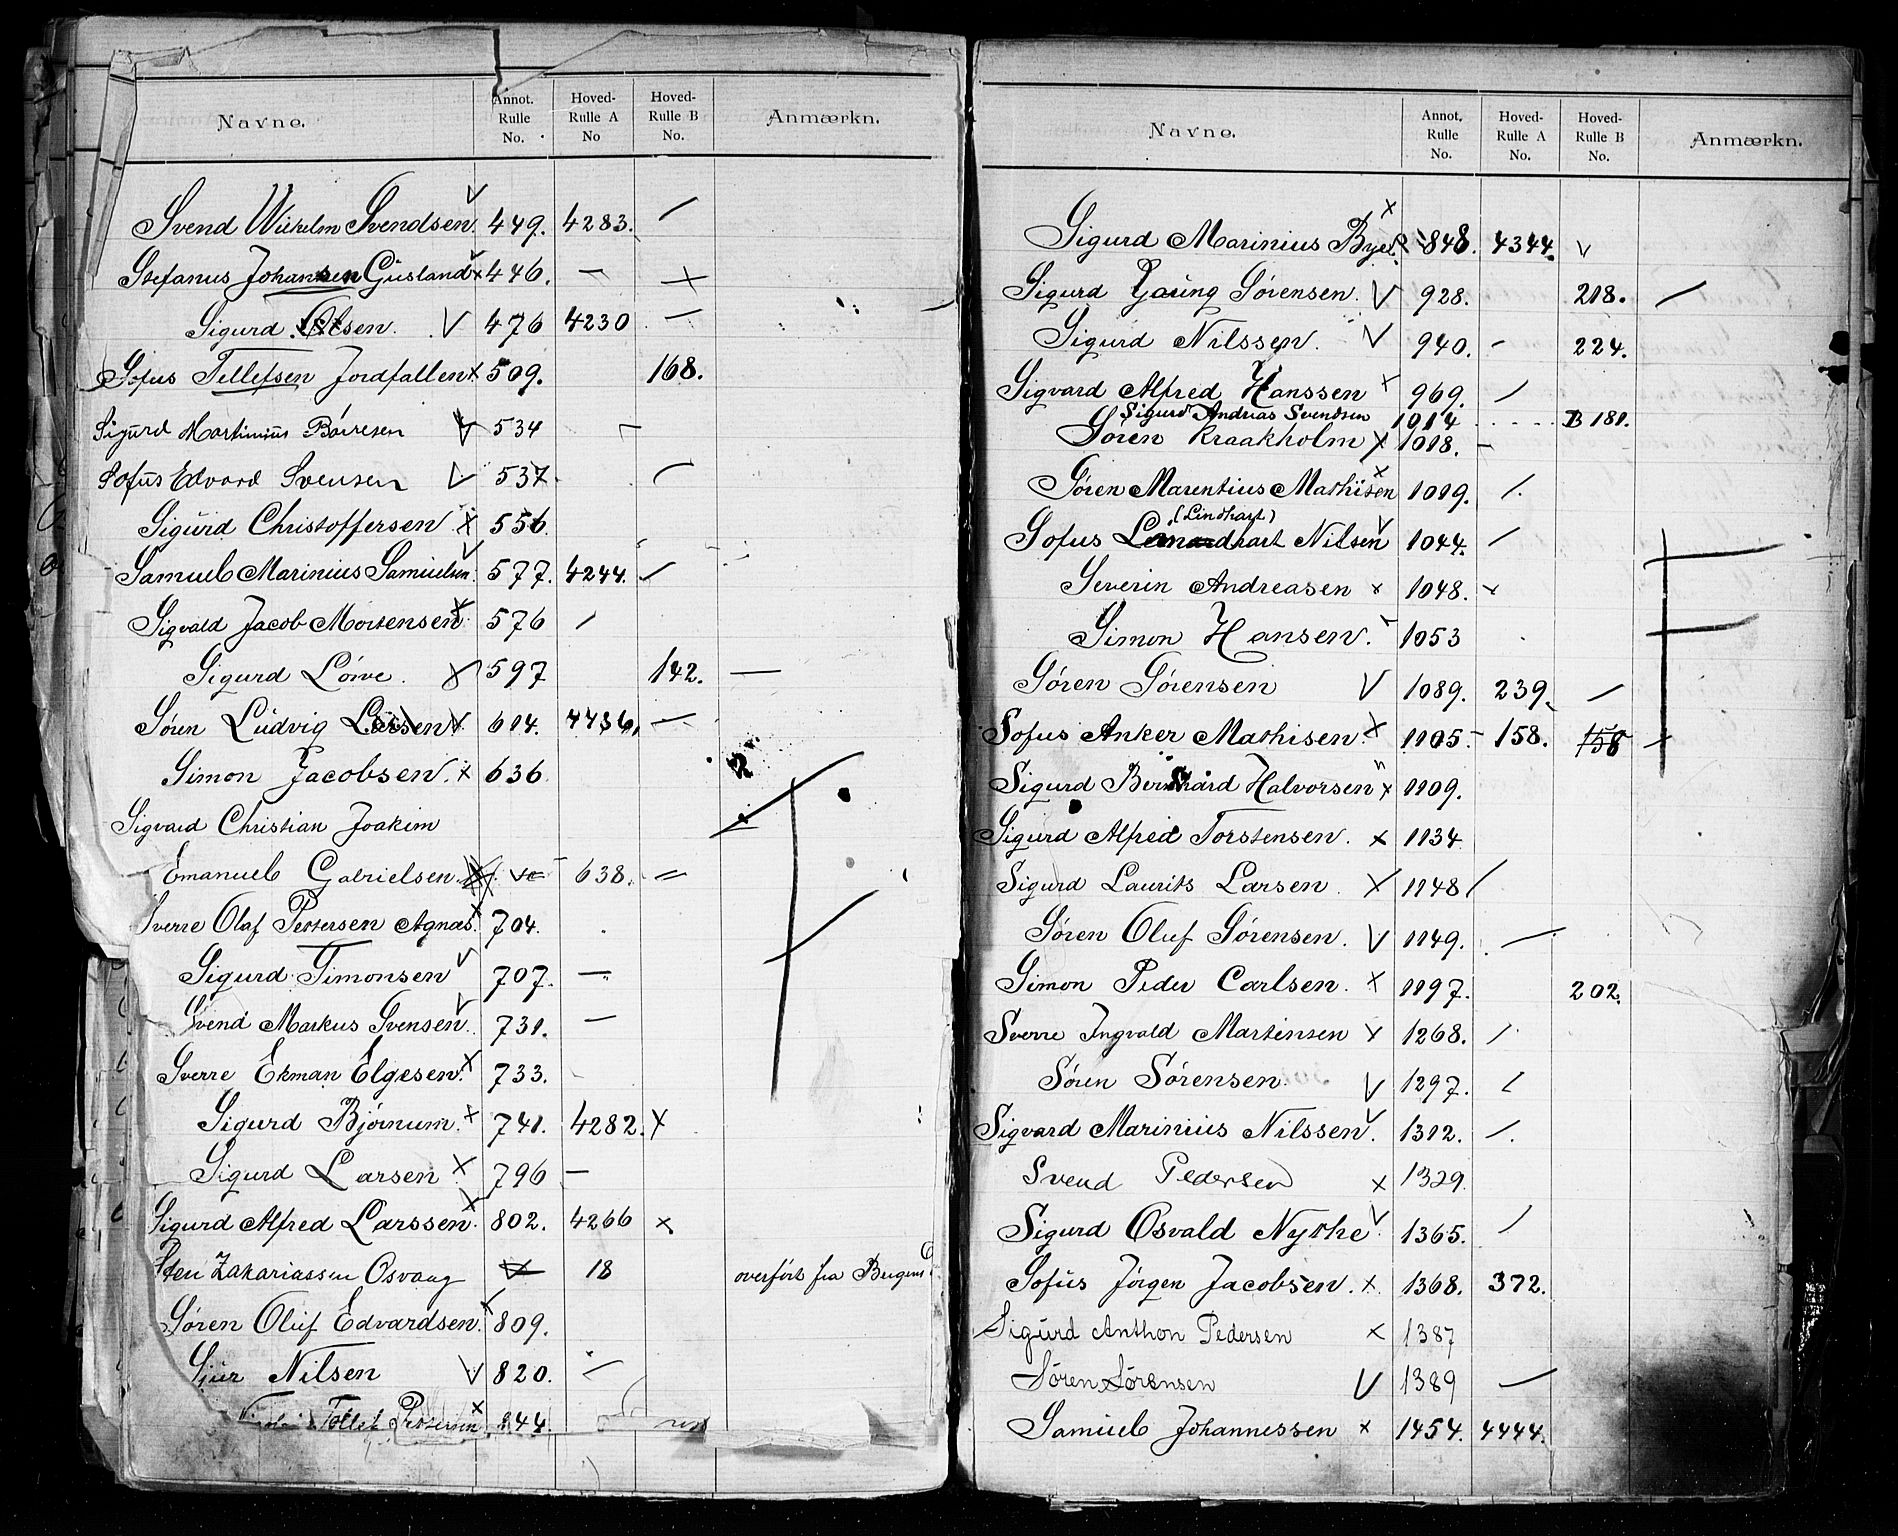 Navne. Annot. Rulle No. Hoved-Rulle A No Hoved-Rulle B No. Anmærkn.
Svend Wilhelm Svendsen V 449. 4283. /
Stefanus Johansen Gusland x 446. — x
Sigurd Olsen. V 476 4230 —
Sofus Tellefsen Jordfallen x 509. 168.
Sigurd Martinius Börresen V 534 –
Sofus Edvard Svensen V 537. –
Sigurd Christoffersen x 556.
Samuel Marinius Samuelsen V 577. 4244. /
Sigvald Jacob Mortensen x 576 /
Sigurd Löwe. x 597 142. —
Søren Ludvig Larsen x 614. 4436. —
Simon Jacobsen. x 636
Sigvard Christian Joakim
Emanuel Gabrielsen. 638. =
Sverre Olaf Pettersen Agnæs. x 704.
Sigurd Simonsen V 707. —
Svend Markus Svensen V 731. —
Sverre Ekman Elgesen. x 733.
Sigurd Bjørnum. x 741. 4282. x
Sigurd Larsen x 796 —
Sigurd Alfred Larssen. x 802. 4266 x
Sten Zakariassen Osvaag 18 overført fra Bergens
Søren Oluf Edvardsen. x 809.
Sjur Nilsen V 820. —
Tollef Pettersen x 844.
Navne. Annot. Rulle No. Hoved-Rulle A No. Hoved-Rulle B No. Anmærkn.
Sigurd Marinius x 848. 4344. v
Sigurd Young Sørensen. V 928. 218. —
Sigurd Nilssen. V 940. - 224.
Sigvard Alfred Hanssen x 969. /
Sigurd Andreas Svendsen 1014 ..... B 181.
Søren Kraakholm x 1018. –
Søren Marentius Mathisen x 1019. /.
(Lindhart)
Sofus Nilsen V 1044. /
Severin Andreasen x 1048. x
Simon Hansen. 1053
Søren Sørensen V 1089. 239. —
Sofus Anker Mathisen. x 1105. - 158. 158 —
Sigurd Bernhard Halvorsen x 1109.
Sigurd Alfred Torstensen. x 1134
Sigurd Laurits Larsen. x 1148 /
Søren Oluf Sørensen. V 1149. —
Simon Peder Carlsen. x 1197. 202.
Sverre Ingvald Martinsen x 1268. /
Søren Sørensen. V 1297. /
Sigvard Marinius Nilssen V. 1312. /.
Svend Pedersen x 1329.
Sigurd Osvald Nythe V. 1365. /
Sofus Jörgen Jacobsen. x. 1368. 372.
Sigurd Anthon Pedersen x 1387
Søren Sørensen V 1389 —
Samuel Johannessen x 1454. 4444.